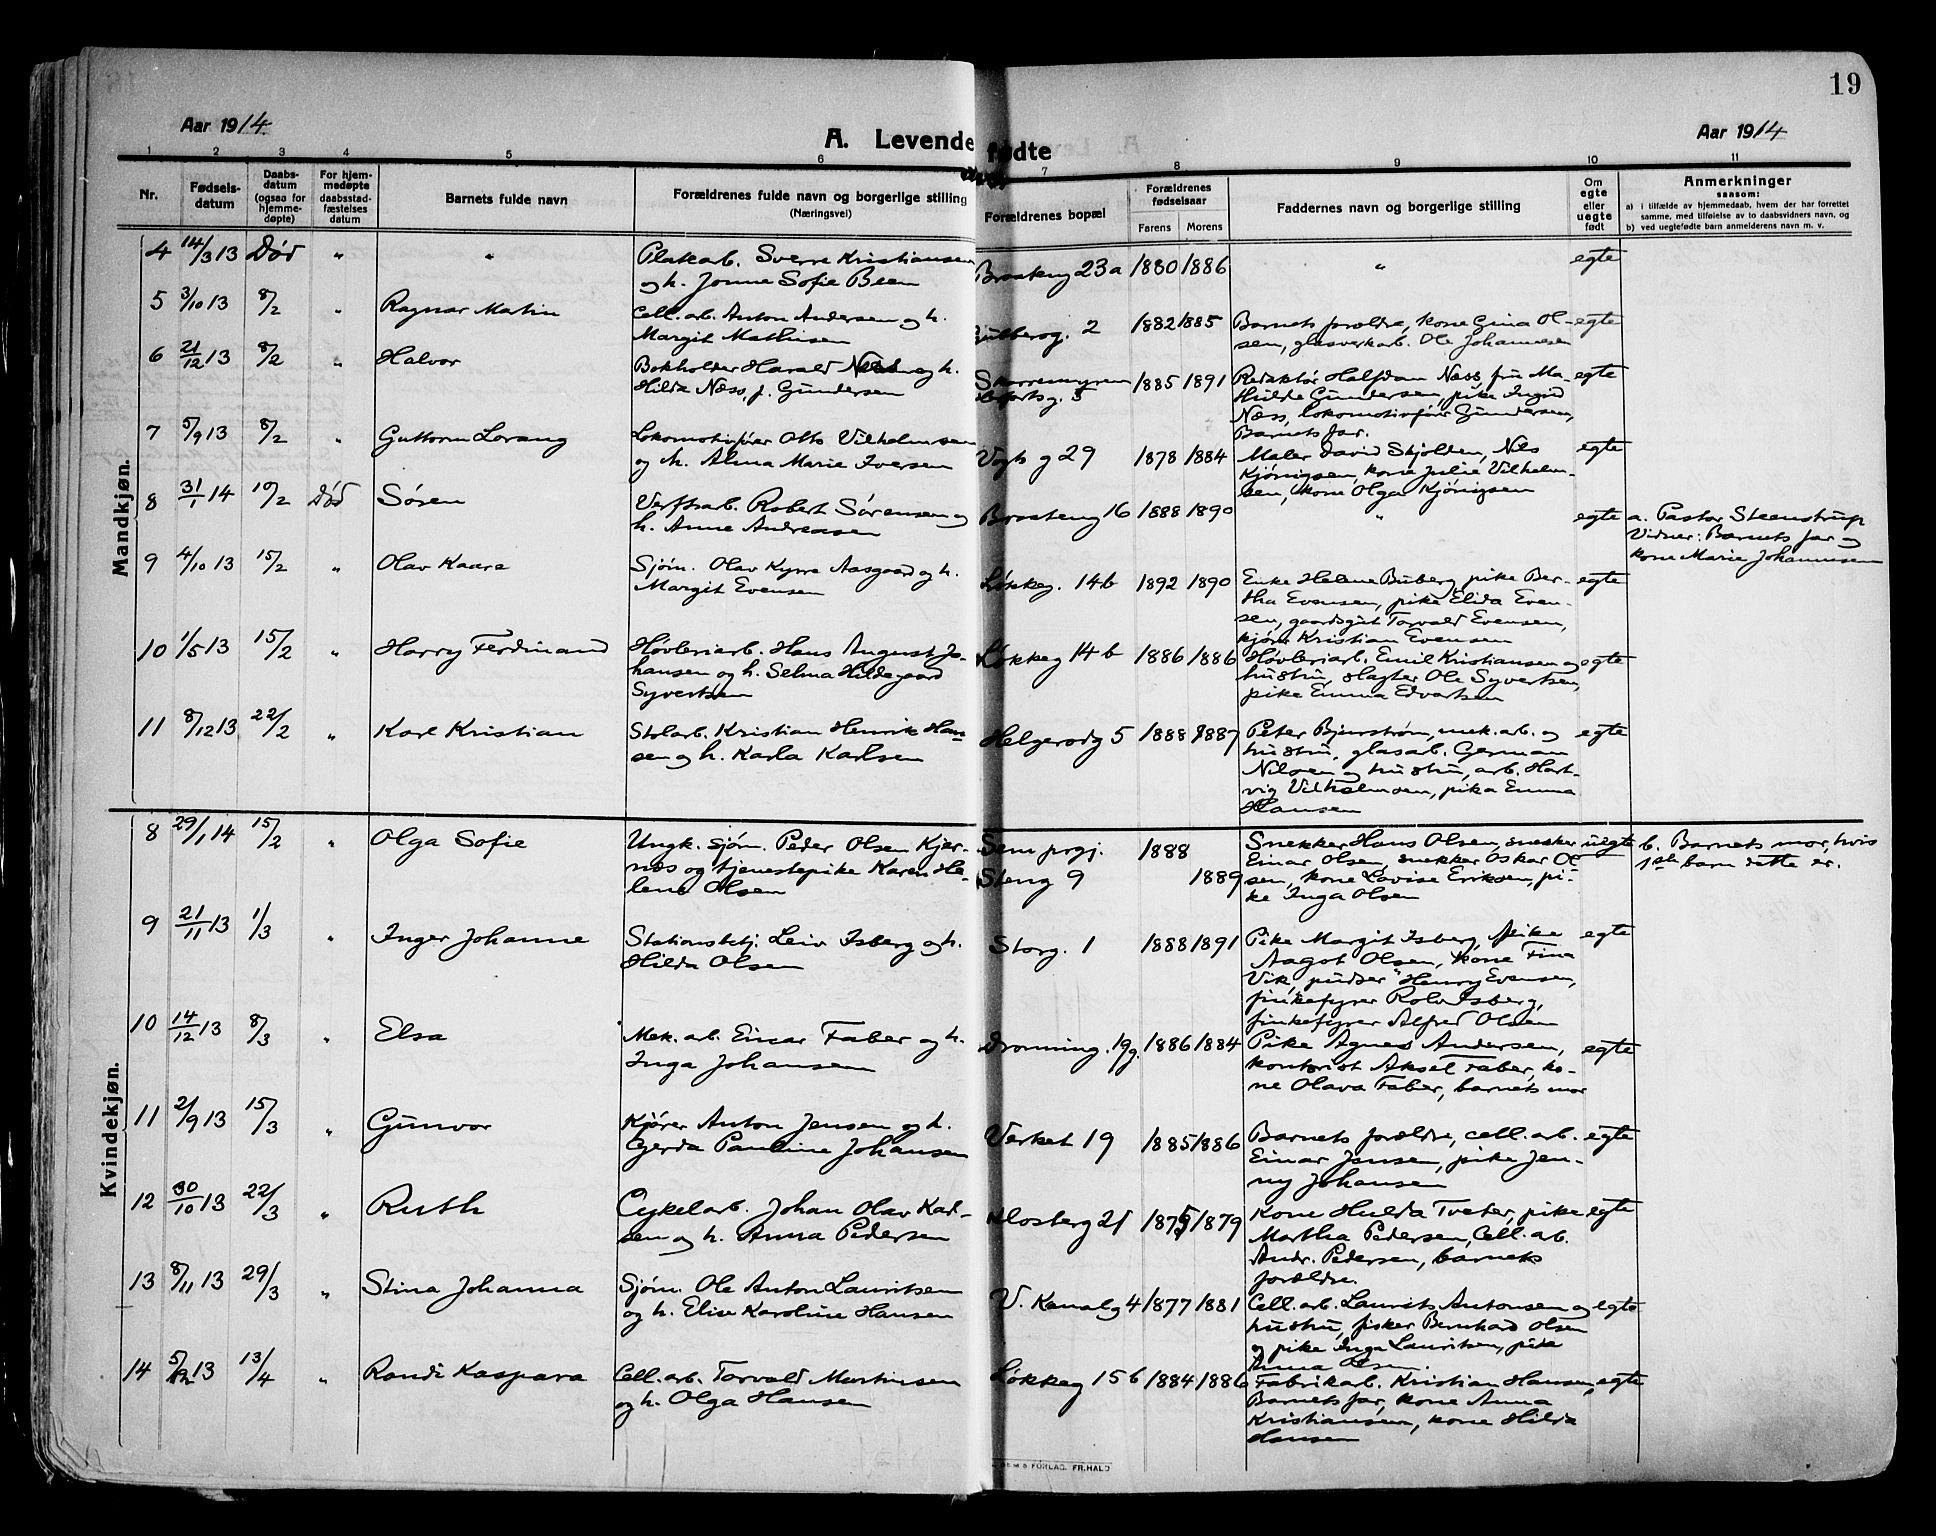 19
Aar 1914 A. Levende fødte Aar 1914
1 2 3 4 5 6 7 8 9 10 11
Nr. Fødsels-datum Daabs-datum (ogsaa for hjemme-døpte) For hjem-medøpte daabsstad-fæstelses datum Barnets fulde navn Forældrenes fulde navn og borgerlige stilling (Næringsvei) Forældrenes bopæl Forældrenes fødselsaar Farens Morens Faddernes navn og borgerlige stilling Om egte eller uegte født Anmerkninger saasom: a) i tilfælde av hjemmedaab, hvem der har forrettet samme, med tilføielse av to daabsvidners navn, og b) ved uegtefødte barn anmelderens navn m. v.
Mandkjøn.
4 14/3 13 Død " " Platearb. Sverre Kristiansen Brosteng 23a 1880 1886 " egte
og h. Jonne Sofie Been
5 3/10 13 8/2 " Ragnar Martin Cell. arb. Anton Andersen og h. 2 1882 1885 Barnets forældre, kone Gina Ol- egte
Margit Mathisen sen, glasverkarb. Ole Johannesen
6 21/12 13 8/2 " Halvor Bokholder Harald Næss og h. 1885 1891 Redaktør Halfdan Næss, fru Ma- egte
Hilda Næss, f. Gundersen g. 5 thilde Gundersen, pike Ingrid
Næss, lokomotivfører Gundersen,
Barnets far.
7 5/9 13 8/2 " Guttorm Lorang Lokomotivfører Otto Vilhelmsen Vogts g 29 1878 1884 Maler David Skjolden, Nils egte
og h. Alma Marie Iversen Kjönigsen, kone Julie Vilhelm-
sen, kone Olga Kjönigsen
8 31/1 14 10/2 Død Søren Verftsarb. Robert Sørensen og Brosteng 16 1888 1890 " egte a. Pastor Steenstrup
h. Anne Andreasen Vidner: Barnets far og
kone Marie Johannesen
9 4/10 13 15/2 " Olav Kaare Sjøm. Olav Kyrre Aasgaard og h. Løkkeg. 14b 1892 1890 Enke Helene Buberg, pike Ber- egte
Margit Evensen tha Evensen, pike Elida Even-
sen, gaardsgut Torvald Evensen,
kjører Kristian Evensen
10 1/5 13 15/2 " Harry Ferdinand Høvleriarb. Hans August Jo- Løkkeg 14b 1886 1886 Høvleriarb. Emil Kristiansen og egte
hansen og h. Selma Hildegaard hustru, slagter Ole Syvertsen,
Syvertsen pike Emma Edvartsen
11 8/12 13 22/2 " Karl Kristian Stolarb. Kristian Henrik Han- Helgerodg 5 1888 1887 Peter Bjurstrøm, mek. arb. og egte
sen og h. Karla Karlsen hustru, glasarb. German
Nilsen og hustru, arb. Hart-
vig Vilhelmsen, pike Emma
Hansen
Kvindekjøn.
8 29/1 14 15/2 " Olga Sofie Ungk. sjøm. Peder Olsen Kjer- Sem prgj. 1888 Snekker Hans Olsen, snekker uegte b. Barnets mor, hvis
næs og tjenestepike Karen He- Steng 9 1889 Einar Olsen, snekker Oskar Ol- 1ste barn dette er.
lene Olsen sen, kone Lovise Eriksen, pi-
ke Inga Olsen
9 21/11 13 1/3 " Inger Johanne Stationsbetj. Leiv Isberg og h. Storg. 1 1888 1891 Pike Margit Isberg, pike egte
Hilda Olsen Aagot Olsen, kone Tina
Vik, pudser Henry Evensen,
finkefyrer Rolv Isberg,
finkefyrer Alfred Olsen
10 14/12 13 8/3 " Elsa Mek. arb. Einar Faber og h. Dronning. 19g. 1886 1884 Pike Agnes Andersen, egte
Inga Johansen kontorist Aksel Faber, ko-
ne Olava Faber, barnets mor
11 2/9 13 15/3 " Gunvor Kjører Anton Jensen og h. Verket 19 1885 1886 Barnets forældre, cell. arb. egte
Gerda Pauline Johansen Einar Jensen, pike Jen-
ny Johansen
12 30/10 13 22/3 " Ruth Cykelarb. Johan Olav Karl- Klosterg 21 1875 1879 Kone Hulda Tveter, pike egte
sen og h. Anna Pedersen Martha Pedersen, Cell. ab.
Andr. Pedersen, barnets
forældre.
13 8/11 13 29/3 " Stina Johanna Sjøm. Ole Anton Lauritsen V. Kanalg 4 1877 1881 Cell. arb. Laurits Antonsen og egte
og h. Elise Karoline Hansen hustru, fisker Bernhard Olsen
og pike Inga Lauritsen, pike
Anna Olsen.
14 5/12 13 13/4 " Randi Kaspara Cell. arb. Torvald Martinsen Løkkeg 15b 1884 1886 Fabrikarb. Kristian Hansen, egte
og h. Olga Hansen Barnets far, kone Anna
Kristiansen, kone Hilda
Hansen
SEM S FORLAG. FR.HALD